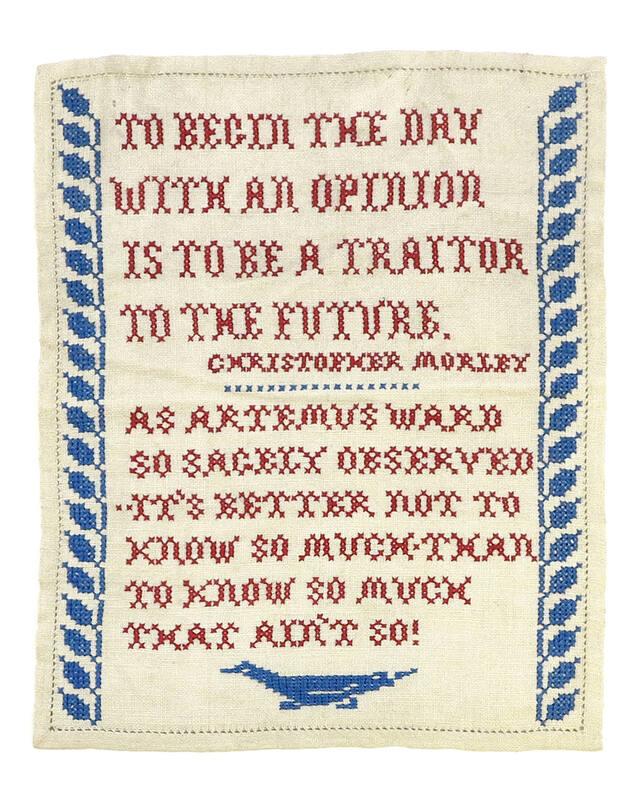 TO BEGIN THE DAY
WITH AN OPINION
IS TO BE A TRAITOR
TO THE FUTURE.
CHRISTOPHER MORLEY
AS ARTEMUS WARD
SO SAGELY OBSERVED
··IT'S BETTER NOT TO
KNOW SO MUCH·THAN
TO KNOW SO MUCH
THAT AIN'T SO!